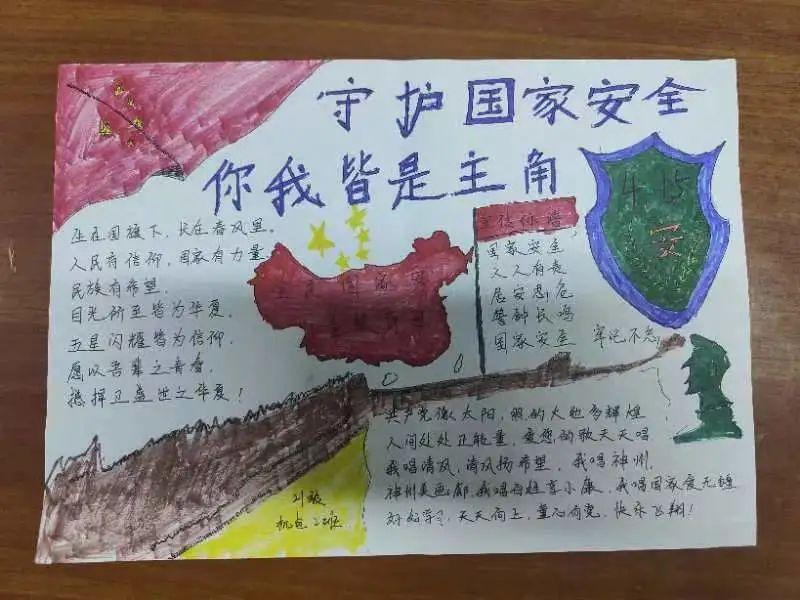 守护国家安全
你我皆是主角
生在国旗下,长在春风里。
人民有信仰,国家有力量
民族有希望.
目光所至皆为华夏,
五星闪耀皆为信仰.
愿以吾辈之青春,
捍卫盛世之华夏!
国家安全,
人人有责
居安思危
警钟长鸣
国家安全
牢记不忘
4 15
共产党像太阳,照的大地多辉煌
人间处处正能量,爱您的歌天天唱
我唱清风,清风扬希望,我唱神州,
神州美画廊,我唱
小康,我唱国家爱无疆
好好学习,天天向上,童心有爱,快乐飞翔!
机电22班